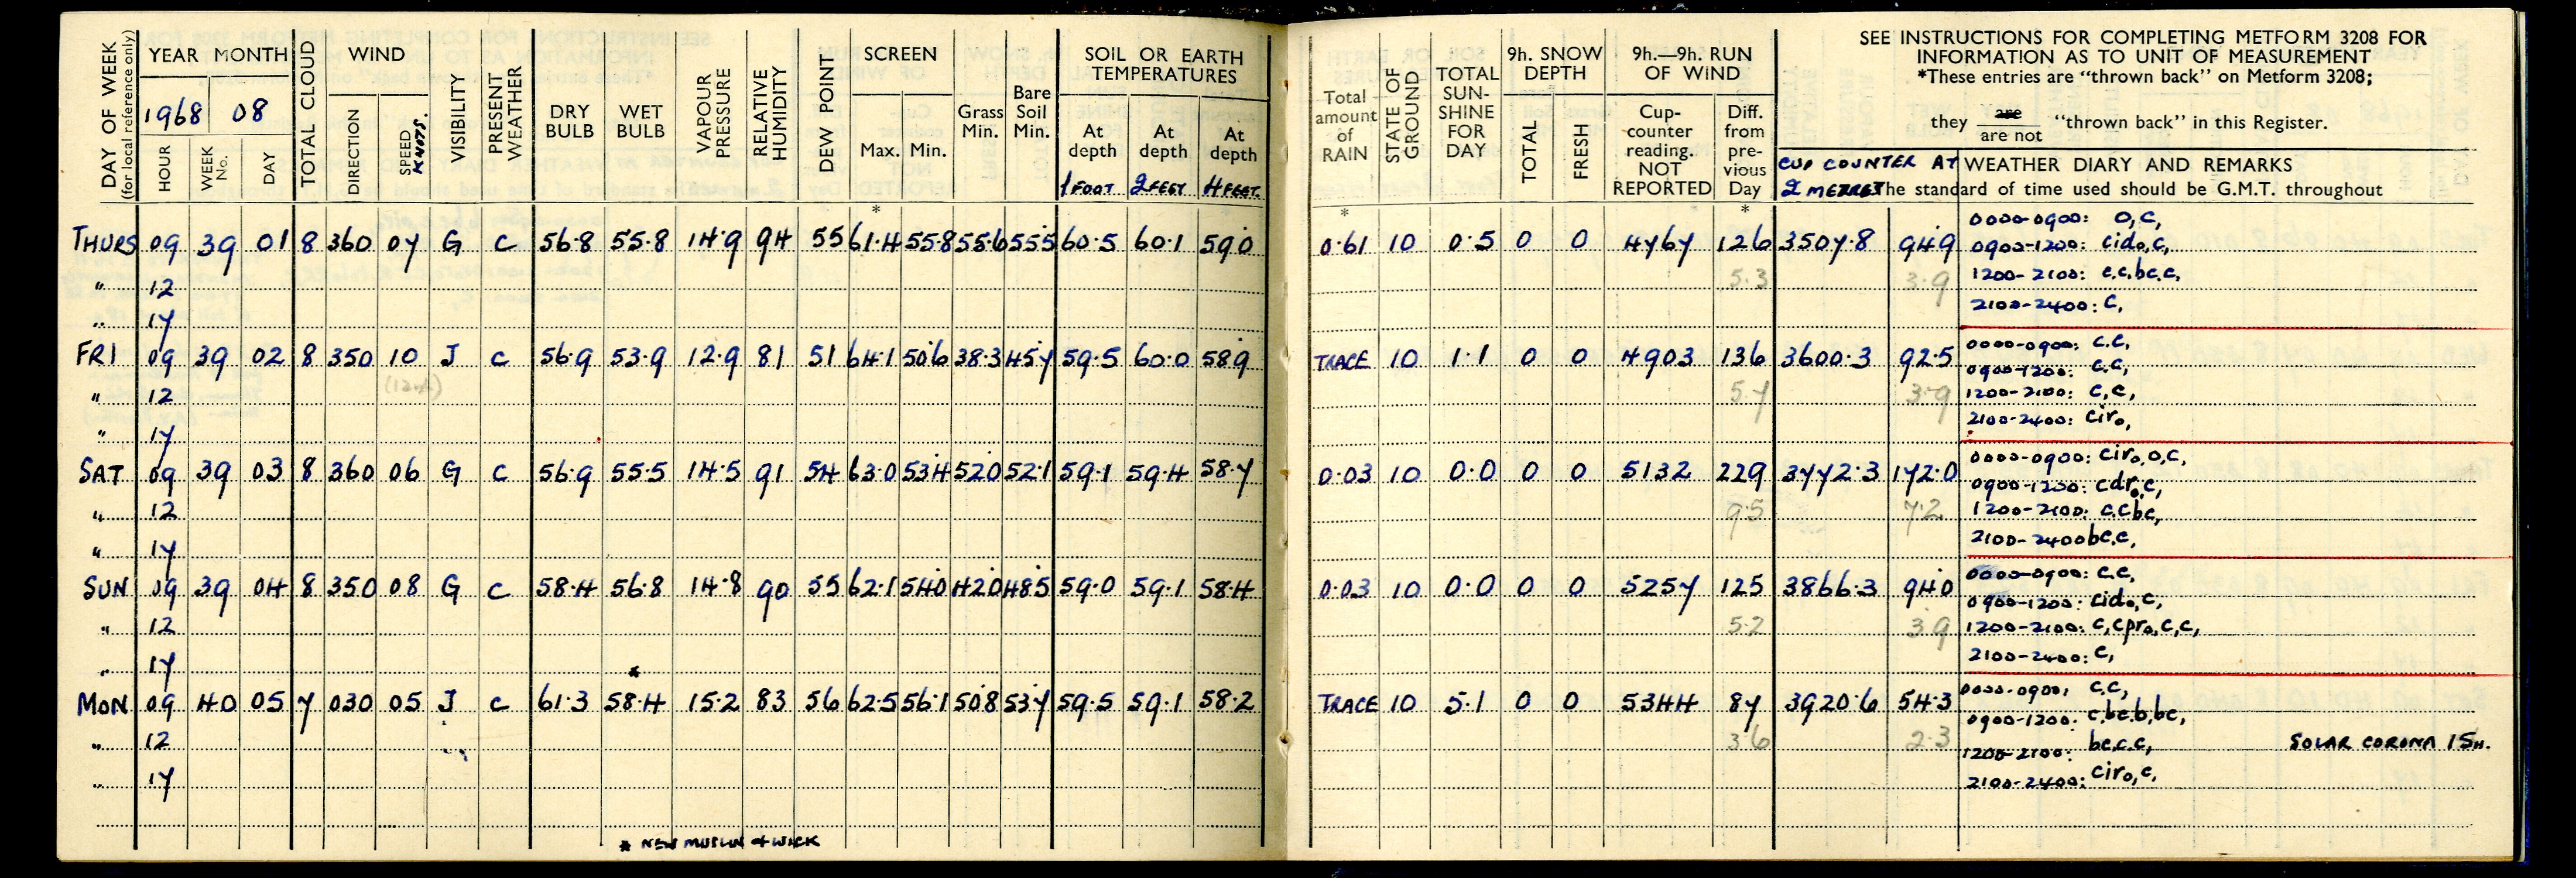 DAY OF WEEK (for local reference only)
YEAR MONTH
1968 08
HOUR WEEK No. DAY
TOTAL CLOUD
WIND
DIRECTION SPEED KNOTS.
VISIBILITY
PRESENT WEATHER
DRY BULB
WET BULB
VAPOUR PRESSURE
RELATIVE HUMIDITY
DEW POINT
SCREEN
Max. Min.
*
Grass Min.
Bare Soil Min.
SOIL OR EARTH TEMPERATURES
At depth 1 FOOT
At depth 2 FEET
At depth 4 FEET.
THURS 09 39 01 8 360 07 G C 56.8 55.8 14.9 94 55 61.4 55.8 55.6 55.5 60.5 60.1 59.0
" 12
" 17
FRI 09 39 02 8 350 10 J C 56.9 53.9 12.9 81 51 64.1 50.6 38.3 45.7 59.5 60.0 58.9
" 12
" 17
SAT 09 39 03 8 360 06 G C 56.9 55.5 14.5 91 54 63.0 53.4 52.0 52.1 59.1 59.4 58.7
" 12
" 17
SUN 09 39 04 8 350 08 G C 58.4 56.8 14.8 90 55 62.1 54.0 42.0 48.5 59.0 59.1 58.4
" 12
" 17 *
MON 09 40 05 7 030 05 J C 61.3 58.4 15.2 83 56 62.5 56.1 50.8 53.7 59.5 59.1 58.2
" 12
" 17
* NEW MUSLIN & WICK
Total amount of RAIN
*
STATE OF GROUND
TOTAL SUN-SHINE FOR DAY
9h. SNOW DEPTH
TOTAL FRESH
9h.—9h. RUN OF WIND
Cup-counter reading. NOT REPORTED
Diff. from pre-vious Day
*
SEE INSTRUCTIONS FOR COMPLETING METFORM 3208 FOR
INFORMATION AS TO UNIT OF MEASUREMENT
*These entries are "thrown back" on Metform 3208;
they are / are not "thrown back" in this Register.
CUP COUNTER AT
2 METRES
WEATHER DIARY AND REMARKS
The standard of time used should be G.M.T. throughout
0.61 10 0.5 0 0 4767 126 3507.8 94.9
5.3 3.9
0000-0900: O,C,
0900-1200: cido,c,
1200-2100: c.c,bc,c,
2100-2400: C,
TRACE 10 1.1 0 0 4903 136 3600.3 92.5
5.7 3.9
0000-0900: C.C,
0900-1200: C.C,
1200-2100: C,C,
2100-2400: ciro,
0.03 10 0.0 0 0 5132 229 3772.3 172.0
9.5 7.2
0000-0900: ciro,o,c,
0900-1200: cdro,c,
1200-2100: c,c,bc,
2100-2400 bc,c,
0.03 10 0.0 0 0 5257 125 3866.3 94.0
5.2 3.9
0000-0900: C.C,
0900-1200: cido,c,
1200-2100: c,cpro,c,c,
2100-2400: C,
TRACE 10 5.1 0 0 5344 87 3920.6 54.3
3.6 2.3
0000-0900, C.C,
0900-1200: c,bc,b,bc,
1200-2100: bc,c.c, SOLAR CORONA 15H.
2100-2400: ciro,c,